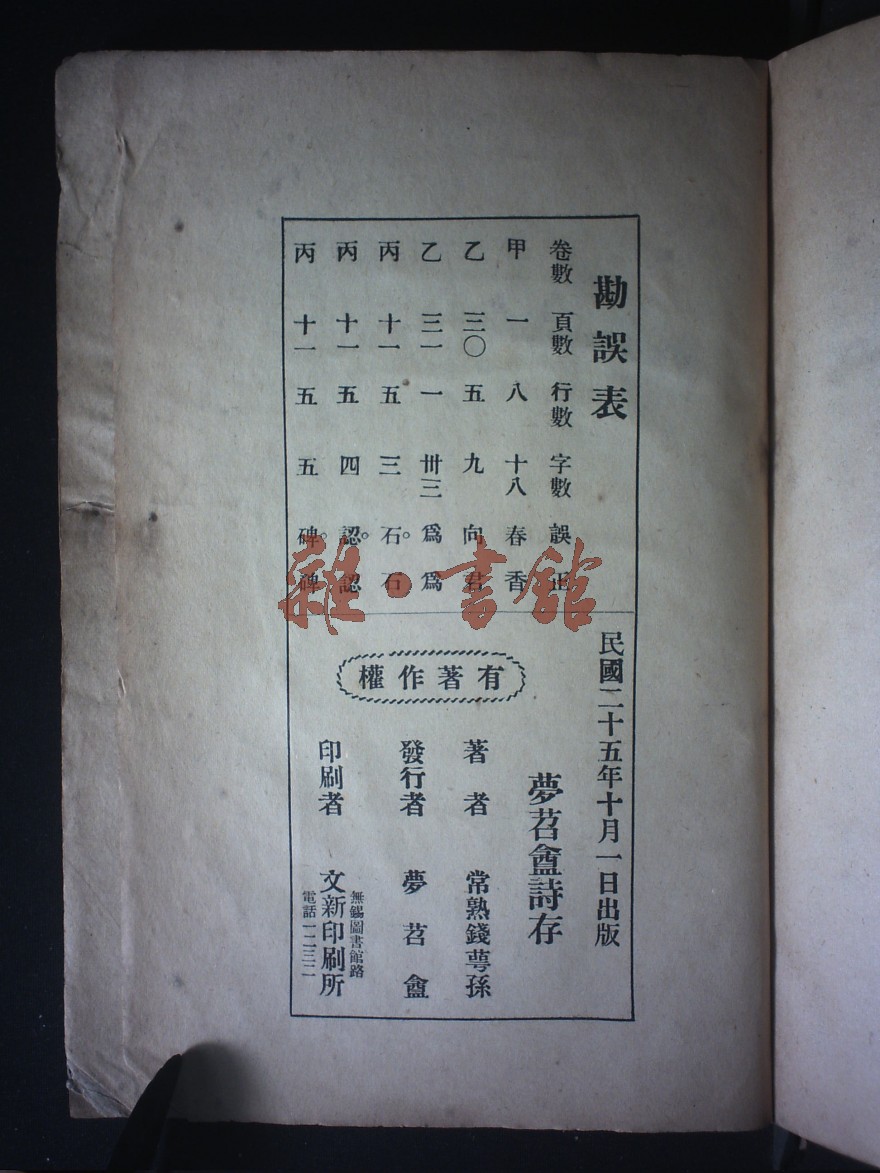 勘誤表
卷數 頁數 行數 字數 誤 正
甲 一 八 十八 春 香
乙 三〇 五 九 向 君
乙 三一 一 卅三 爲 爲
丙 十一 五 三 石。 石
丙 十一 五 四 認。 認
丙 十一 五 五 碑。 碑
民國二十五年十月一日出版
夢苕盦詩存
有著作權
著者 常熟錢萼孫
發行者 夢苕盦
印刷者 文新印刷所
無錫圖書館路
電話一二三二
雜·書館